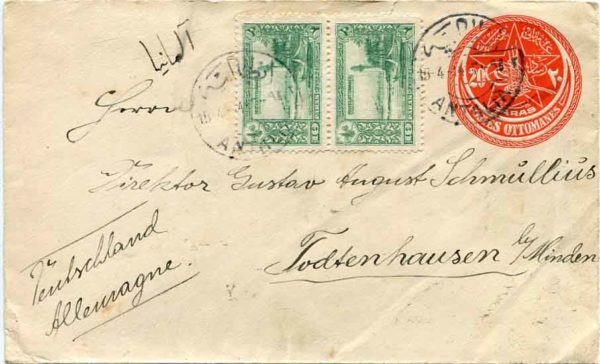 آلمانيا
Herrn
Direktor Gustav August Schmüllius
Todtenhausen b/Minden
Deutschland
Allemagne.
10 PARAS 10
10 PARAS 10
20
٢٠
PARAS
POSTES OTTOMANES